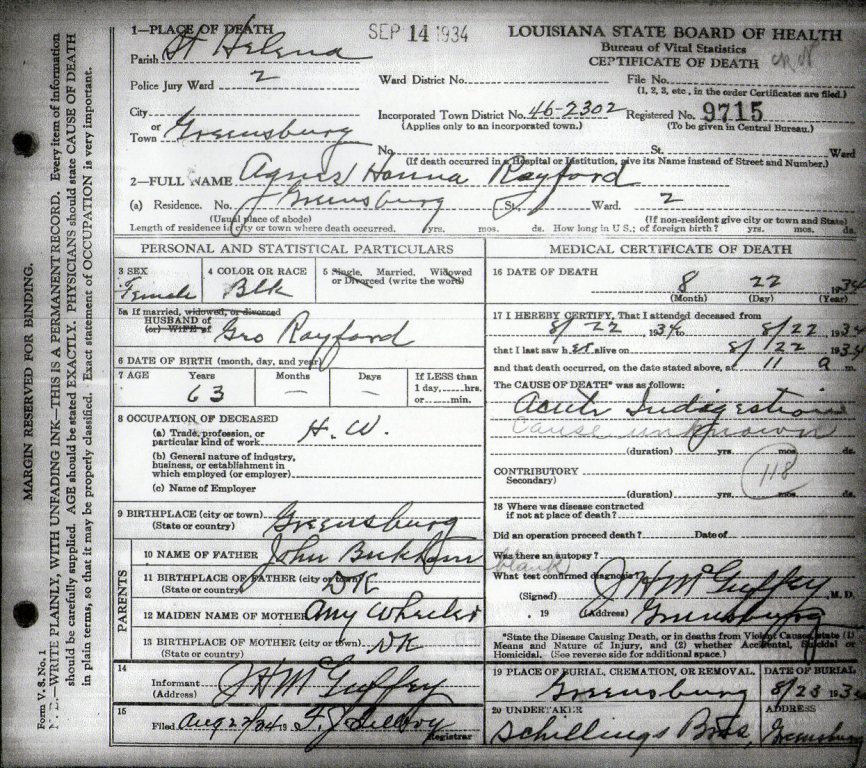 MARGIN RESERVED FOR BINDING.
Form V. S. No. 1
N. B.—WRITE PLAINLY, WITH UNFADING INK—THIS IS A PERMANENT RECORD. Every item of information
should be carefully supplied. AGE should be stated EXACTLY. PHYSICIANS should state CAUSE OF DEATH
in plain terms, so that it may be properly classified. Exact statement of OCCUPATION is very important.
SEP 14 1934
LOUISIANA STATE BOARD OF HEALTH
Bureau of Vital Statistics
CERTIFICATE OF DEATH
1—PLACE OF DEATH
Parish St Helena
Police Jury Ward 2
Ward District No.
File No.
(1, 2, 3, etc., in the order Certificates are filed.)
City
or
Town Greensburg
Incorporated Town District No. 46-2302 Registered No. 9715
(Applies only to an incorporated town.) (To be given in Central Bureau.)
No. St. Ward
(If death occurred in a Hospital or Institution, give its Name instead of Street and Number.)
2—FULL NAME Agnes Hanna Rayford
(a) Residence. No. Greensburg St., Ward. 2
(Usual place of abode) (If non-resident give city or town and State)
Length of residence in city or town where death occurred. yrs. mos. ds. How long in U S.; of foreign birth? yrs. mos. ds.
PERSONAL AND STATISTICAL PARTICULARS
3 SEX
Female
4 COLOR OR RACE
Blk
5 Single, Married, Widowed
or Divorced (write the word)
5a If married, widowed, or divorced
HUSBAND of
(or) WIFE of
Geo Rayford
6 DATE OF BIRTH (month, day, and year)
7 AGE Years Months Days If LESS than
1 day, hrs.
or min.
63 — —
8 OCCUPATION OF DECEASED
(a) Trade, profession, or
particular kind of work H. W.
(b) General nature of industry,
business, or establishment in
which employed (or employer)
(c) Name of Employer
9 BIRTHPLACE (city or town) Greensburg
(State or country)
PARENTS
10 NAME OF FATHER John
11 BIRTHPLACE OF FATHER (city or town) DK
(State or country)
12 MAIDEN NAME OF MOTHER Amy Wheeler
13 BIRTHPLACE OF MOTHER (city or town) DK
(State or country)
14
Informant J H McGuffey
(Address)
15
Filed Aug 23/34 19
Registrar
MEDICAL CERTIFICATE OF DEATH
16 DATE OF DEATH
8 22 1934
(Month) (Day) (Year)
17 I HEREBY CERTIFY, That I attended deceased from
8/22 1934 to 8/22 1934
that I last saw her alive on 8/22 1934
and that death occurred, on the date stated above, at 11 a m.
The CAUSE OF DEATH* was as follows:
Acute Indigestion
cause unknown
(duration) yrs. mos. ds.
118
CONTRIBUTORY
Secondary)
(duration) yrs. mos. ds.
18 Where was disease contracted
if not at place of death?
Did an operation precede death? Date of
Was there an autopsy?
blank
What test confirmed diagnosis?
(Signed) J H McGuffey M. D.
, 19 (Address) Greensburg
*State the Disease Causing Death, or in deaths from Violent Causes, state (1)
Means and Nature of Injury, and (2) whether Accidental, Suicidal or
Homicidal. (See reverse side for additional space.)
19 PLACE OF BURIAL, CREMATION, OR REMOVAL.
Greensburg
DATE OF BURIAL
8/23 1934
20 UNDERTAKER
Schillings Bros,
ADDRESS
Greensburg